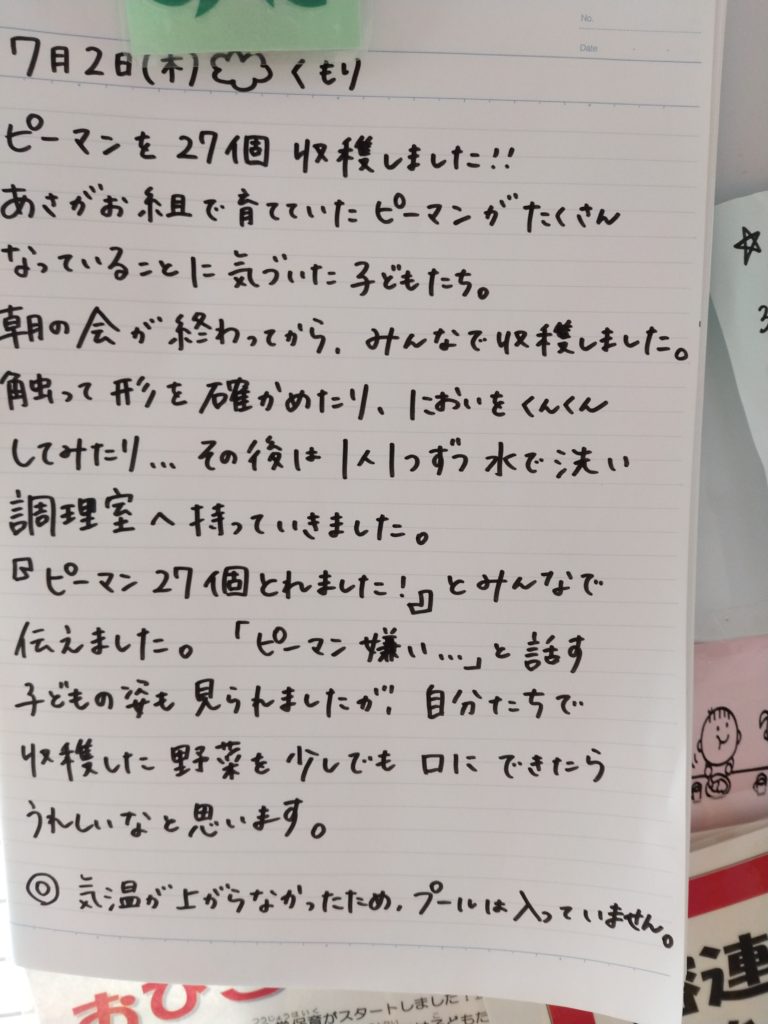 No.
Date
7月2日(木) くもり
ピーマンを 27個 収穫しました!!
あさがお組で育てていた ピーマンが たくさん
なっていることに 気づいた 子どもたち。
朝の会が 終わってから、みんなで収穫しました。
触って 形を 確かめたり、においを くんくん
してみたり... その後は 1人1つずつ 水で洗い
調理室へ 持っていきました。
『ピーマン 27個とれました!』と みんなで
伝えました。「ピーマン 嫌い...」と 話す
子どもの姿も 見られましたが、自分たちで
収穫した 野菜を 少しでも 口に できたら
うれしいなと 思います。
◎ 気温が 上がらなかったため、プールは 入っていません。
☆
保育がスタートしました!